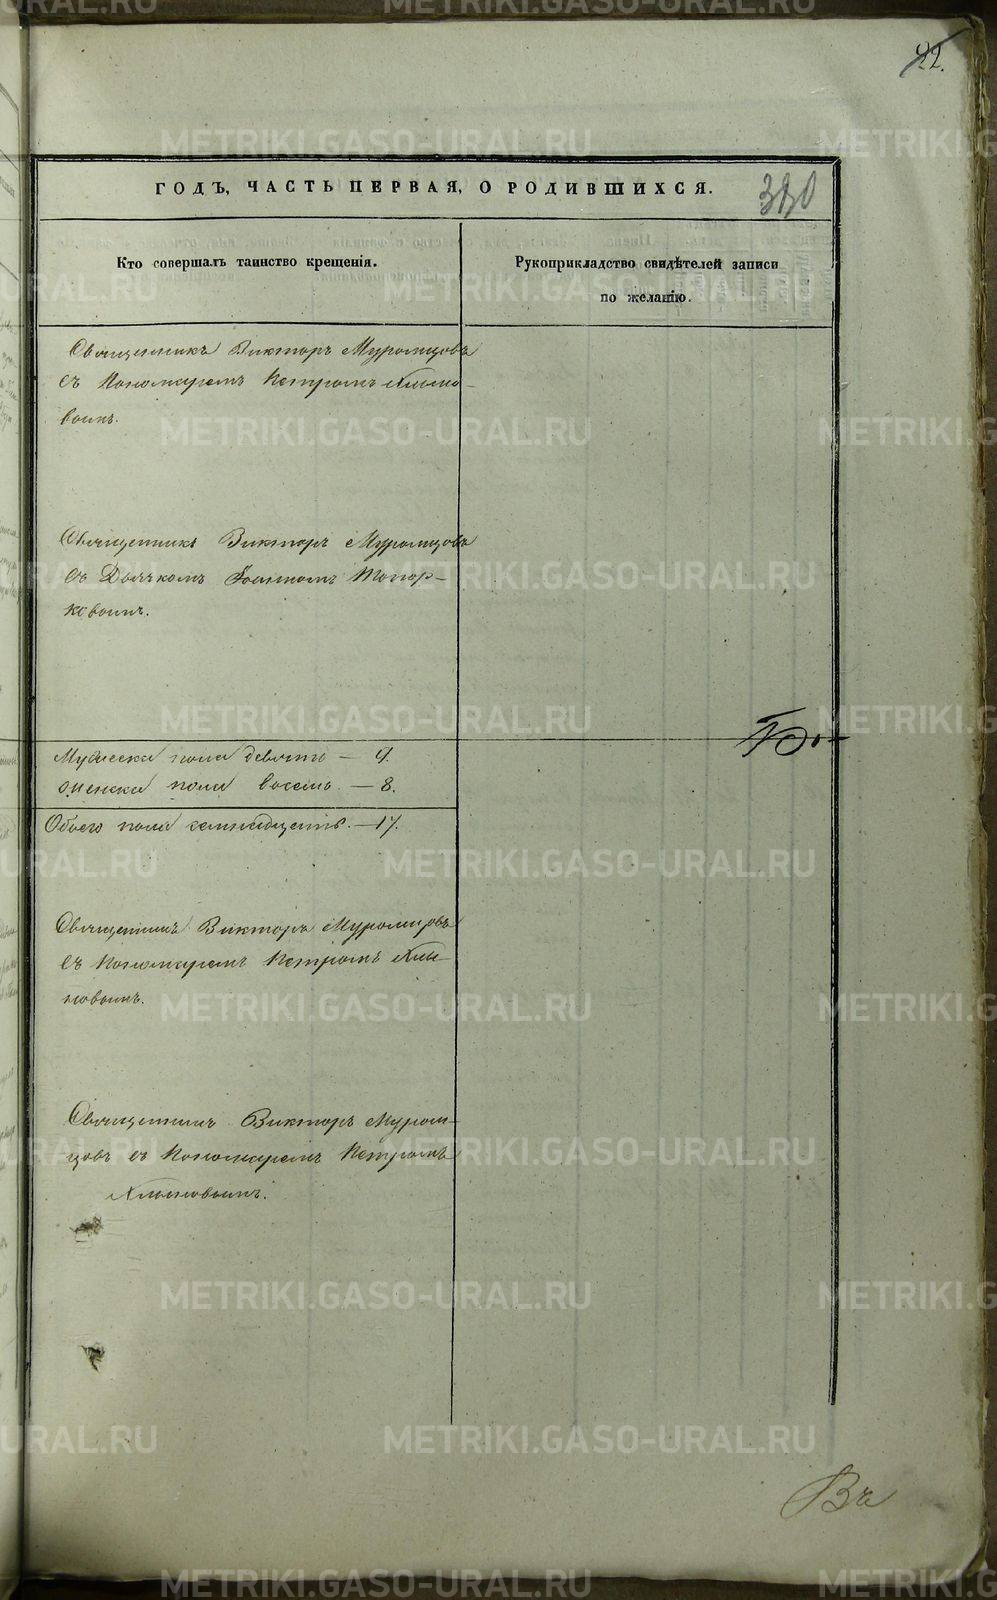 22.
ГОДЪ, ЧАСТЬ ПЕРВАЯ, О РОДИВШИХСЯ.
330
Кто совершалъ таинство крещенія.
Рукоприкладство свидѣтелей записи
по желанію.
Священникъ Викторъ Муромцовъ
съ Пономаремъ Петромъ Хлыно-
вымъ.
Священникъ Викторъ Муромцовъ
съ Дьячкомъ Іоанномъ Топор-
ковымъ.
Мужеска пола девять — 9.
женска пола восемь. — 8.
Обоего пола семнадцать. — 17.
Священникъ Викторъ Муромцовъ
съ Пономаремъ Петромъ Хлы-
новымъ.
Священникъ Викторъ Муром-
цовъ съ Пономаремъ Петромъ
Хлыновымъ.
Въ
METRIKI.GASO-URAL.RU